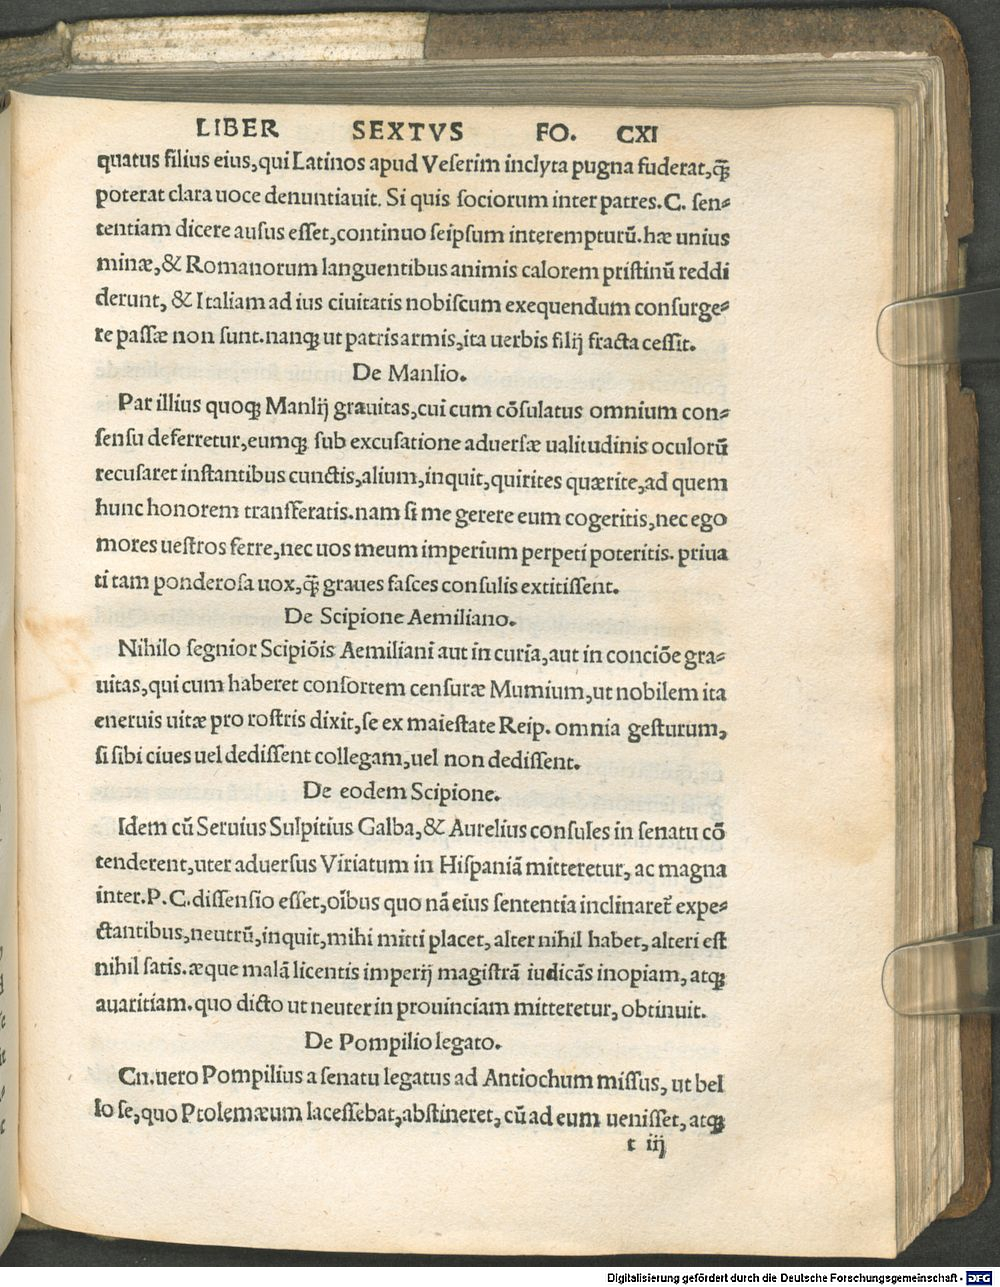 LIBER SEXTVS FO. CXI
quatus filius eius,qui Latinos apud Veſerim inclyta pugna fuderat,q̃
poterat clara uoce denuntiauit. Si quis ſociorum inter patres.C. ſen⸗
tentiam dicere auſus eſſet,continuo ſeipſum interempturũ.hæ unius
minæ,& Romanorum languentibus animis calorem priſtinũ reddi
derunt, & Italiam ad ius ciuitatis nobiſcum exequendum conſurge⸗
re paſſæ non ſunt.nanqꝫ ut patris armis,ita uerbis filij fracta ceſſit.
De Manlio.
Par illius quoqꝫ Manlij grauitas,cui cum cõſulatus omnium con⸗
ſenſu deferretur,eumqꝫ ſub excuſatione aduerſæ ualitudinis oculorũ
recuſaret inſtantibus cunctis,alium,inquit,quirites quærite,ad quem
hunc honorem transferatis.nam ſi me gerere eum cogeritis,nec ego
mores ueſtros ferre,nec uos meum imperium perpeti poteritis. priua
ti tam ponderoſa uox,q̃ graues faſces conſulis extitiſſent.
De Scipione Aemiliano.
Nihilo ſegnior Scipiõis Aemiliani aut in curia,aut in conciõe gra⸗
uitas,qui cum haberet conſortem cenſuræ Mumium,ut nobilem ita
eneruis uitæ pro roſtris dixit,ſe ex maieſtate Reip. omnia geſturum,
ſi ſibi ciues uel dediſſent collegam,uel non dediſſent.
De eodem Scipione.
Idem cũ Seruius Sulpitius Galba,& Aurelius conſules in ſenatu cõ
tenderent,uter aduerſus Viriatum in Hiſpaniã mitteretur, ac magna
inter.P.C.diſſenſio eſſet,oĩbus quo nã eius ſententia inclinaret᷑ expe⸗
ctantibus,neutrũ,inquit,mihi mitti placet, alter nihil habet, alteri eſt
nihil ſatis.æque malã licentis imperij magiſtrã iudicãs inopiam, atqꝫ
auaritiam.quo dicto ut neuter in prouinciam mitteretur, obtinuit.
De Pompilio legato.
Cn.uero Pompilius a ſenatu legatus ad Antiochum miſſus, ut bel
lo ſe,quo Ptolemæum laceſſebat,abſtineret, cũ ad eum ueniſſet, atqꝫ
t iij
Digitalisierung gefördert durch die Deutsche Forschungsgemeinschaft - DFG